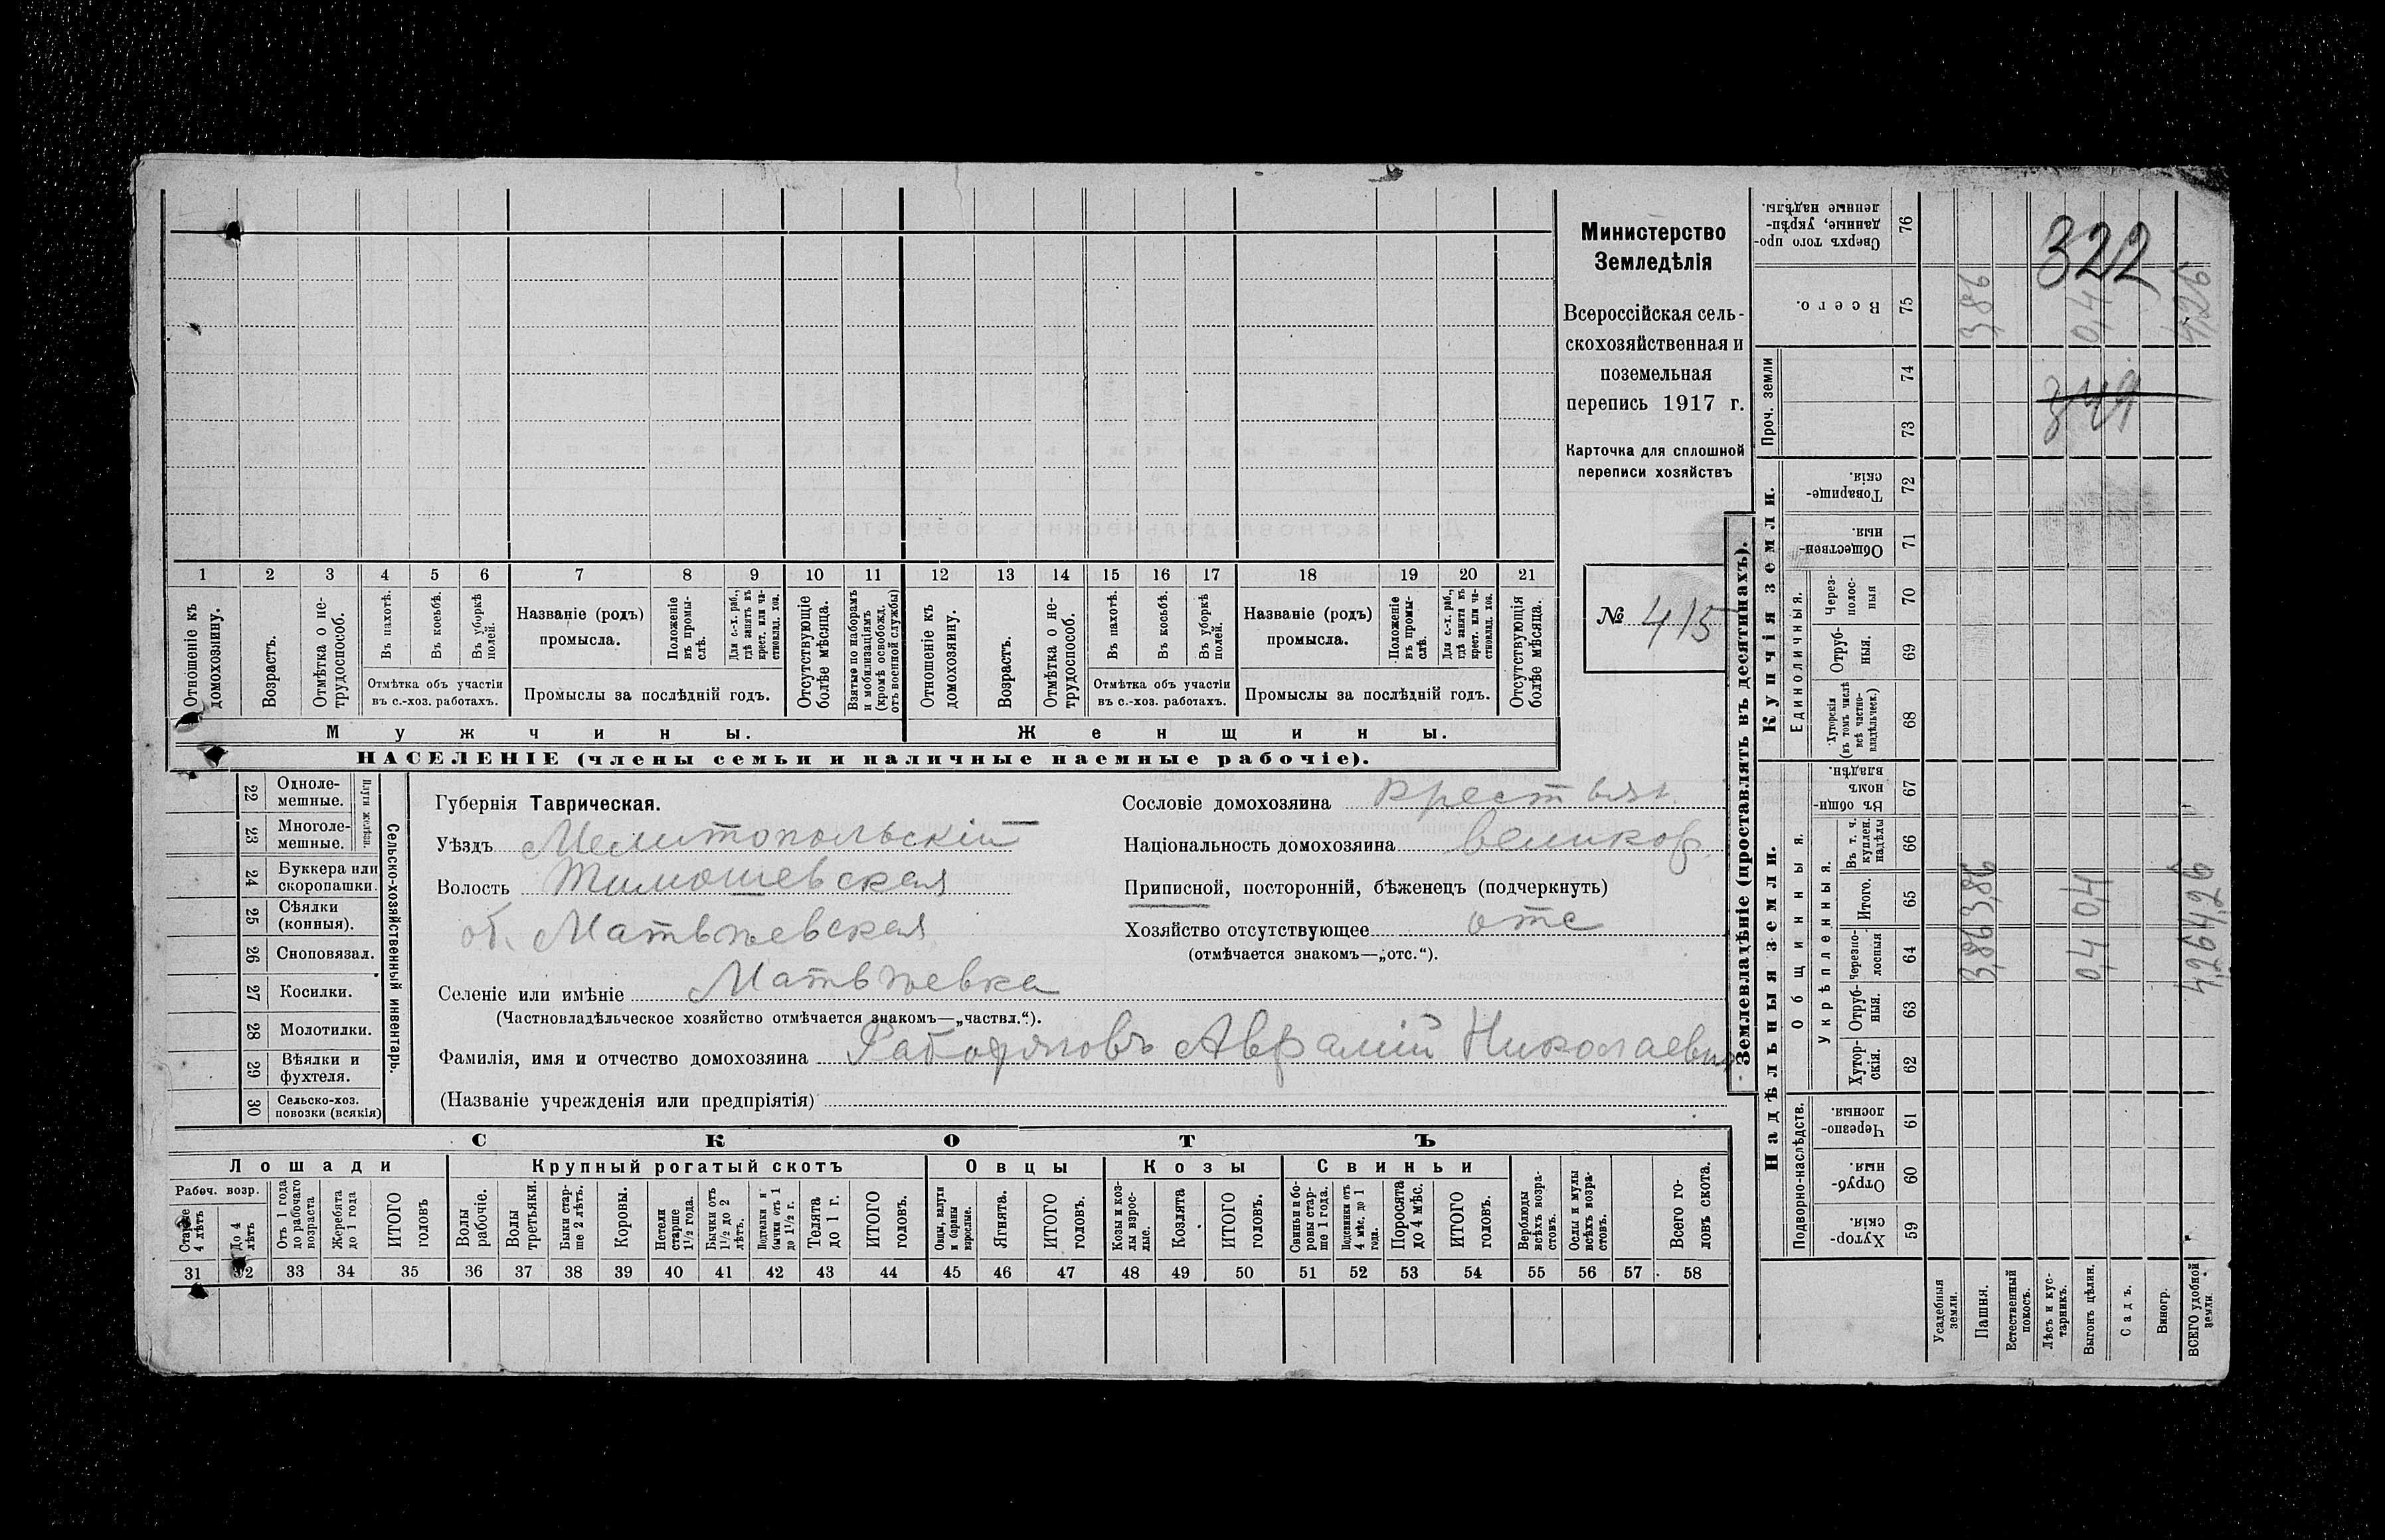 Министерство
Земледѣлія
Всероссійская сель-
скохозяйственная и
поземельная
перепись 1917 г.
Карточка для сплошной
переписи хозяйствъ
№ 415
1 2 3 4 5 6 7 8 9 10 11 12 13 14 15 16 17 18 19 20 21
Отношеніе къ домохозяину.
Возрастъ.
Отмѣтка о не-трудоспособ.
Въ пахотѣ.
Въ косьбѣ.
Въ уборкѣ полей.
Отмѣтка объ участіи
въ с.-хоз. работахъ.
Названіе (родъ)
промысла.
Положеніе въ промы-слѣ.
Для с.-х. раб., гдѣ занятъ въ крест. или ча-стновлад. хоз.
Промыслы за послѣдній годъ.
Отсутствующіе болѣе мѣсяца.
Взятые по наборамъ и мобилизаціямъ (кромѣ освобожд. отъ военной службы)
Отношеніе къ домохозяину.
Возрастъ.
Отмѣтка о не-трудоспособ.
Въ пахотѣ.
Въ косьбѣ.
Въ уборкѣ полей.
Отмѣтка объ участіи
въ с.-хоз. работахъ.
Названіе (родъ)
промысла.
Положеніе въ промы-слѣ.
Для с.-х. раб., гдѣ занята въ крест. или ча-стновлад. хоз.
Промыслы за послѣдній годъ.
Отсутствующія болѣе мѣсяца.
Мужчины.
Женщины.
НАСЕЛЕНІЕ (члены семьи и наличные наемные рабочіе).
22 Одноле-мешные.
23 Многоле-мешные.
Плуги желѣзн.
24 Буккера или скоропашки.
25 Сѣялки (конныя).
26 Сноповязал.
27 Косилки.
28 Молотилки.
29 Вѣялки и фухтеля.
30 Сельско-хоз. повозки (всякія)
Сельско-хозяйственный инвентарь.
Губернія Таврическая.
Уѣздъ Мелитопольскій
Волость Тимошевская
об. Матвѣевская
Селеніе или имѣніе Матвѣевка
(Частновладѣльческое хозяйство отмѣчается знакомъ—„частвл.“).
Фамилія, имя и отчество домохозяина Авраамій Николаевич
(Названіе учрежденія или предпріятія)
Сословіе домохозяина крестьян.
Національность домохозяина великор.
Приписной, посторонній, бѣженецъ (подчеркнуть)
Хозяйство отсутствующее отс
(отмѣчается знакомъ—„отс.“).
СКОТЪ
Лошади
Крупный рогатый скотъ
Овцы
Козы
Свиньи
Рабоч. возр.
Старше 4 лѣтъ
До 4 лѣтъ
Отъ 1 года до рабочаго возраста
Жеребята до 1 года
ИТОГО головъ
Волы рабочіе.
Волы третьяки.
Быки стар-ше 2 лѣтъ.
Коровы.
Нетели старше 1½ года.
Бычки отъ 1½ до 2 лѣтъ.
Подтелки и бычки отъ 1 до 1½ г.
Телята до 1 г.
ИТОГО головъ.
Овцы, валухи и бараны взрослые.
Ягнята.
ИТОГО головъ.
Козы и коз-лы взрос-лые.
Козлята
ИТОГО головъ.
Свиньи и бо-ровы стар-ше 1 года.
Подсвинки отъ 4 мѣс. до 1 года.
Поросята до 4 мѣс.
ИТОГО головъ.
Верблюды всѣхъ возра-стовъ.
Ослы и мулы всѣхъ возра-стовъ.
Всего го-ловъ скота.
31 32 33 34 35 36 37 38 39 40 41 42 43 44 45 46 47 48 49 50 51 52 53 54 55 56 57 58
Землевладѣніе (проставлять въ десятинахъ).
Надѣльныя земли.
Купчія земли.
Проч. земли
Подворно-наслѣдств.
Общинныя.
Укрѣпленныя.
Единоличныя.
Хутор-скія. 59
Отруб-ныя. 60
Черезпо-лосныя 61
Хутор-скія. 62
Отруб-ныя. 63
Черезпо-лосныя 64
Итого. 65
Въ т. ч. куплен. надѣлы 66
Въ общин-номъ владѣн. 67
Хуторскія (въ томъ числѣ всѣ частно-владѣльческ.) 68
Отруб-ныя. 69
Через-полос-ныя 70
Обществен-ныя. 71
Товарище-скія. 72
73
74
Всего. 75
Сверхъ того про-данные, укрѣп-ленные надѣлы. 76
Усадебныя земли.
Пашня. 3,86 3,86 3,86
Естественный покосъ.
Лѣсъ и кус-тарникъ.
Выгонъ цѣлин. 0,4 0,4 0,4
Садъ.
Виногр.
ВСЕГО удобной земли. 4,26 4,26 4,26
322
349